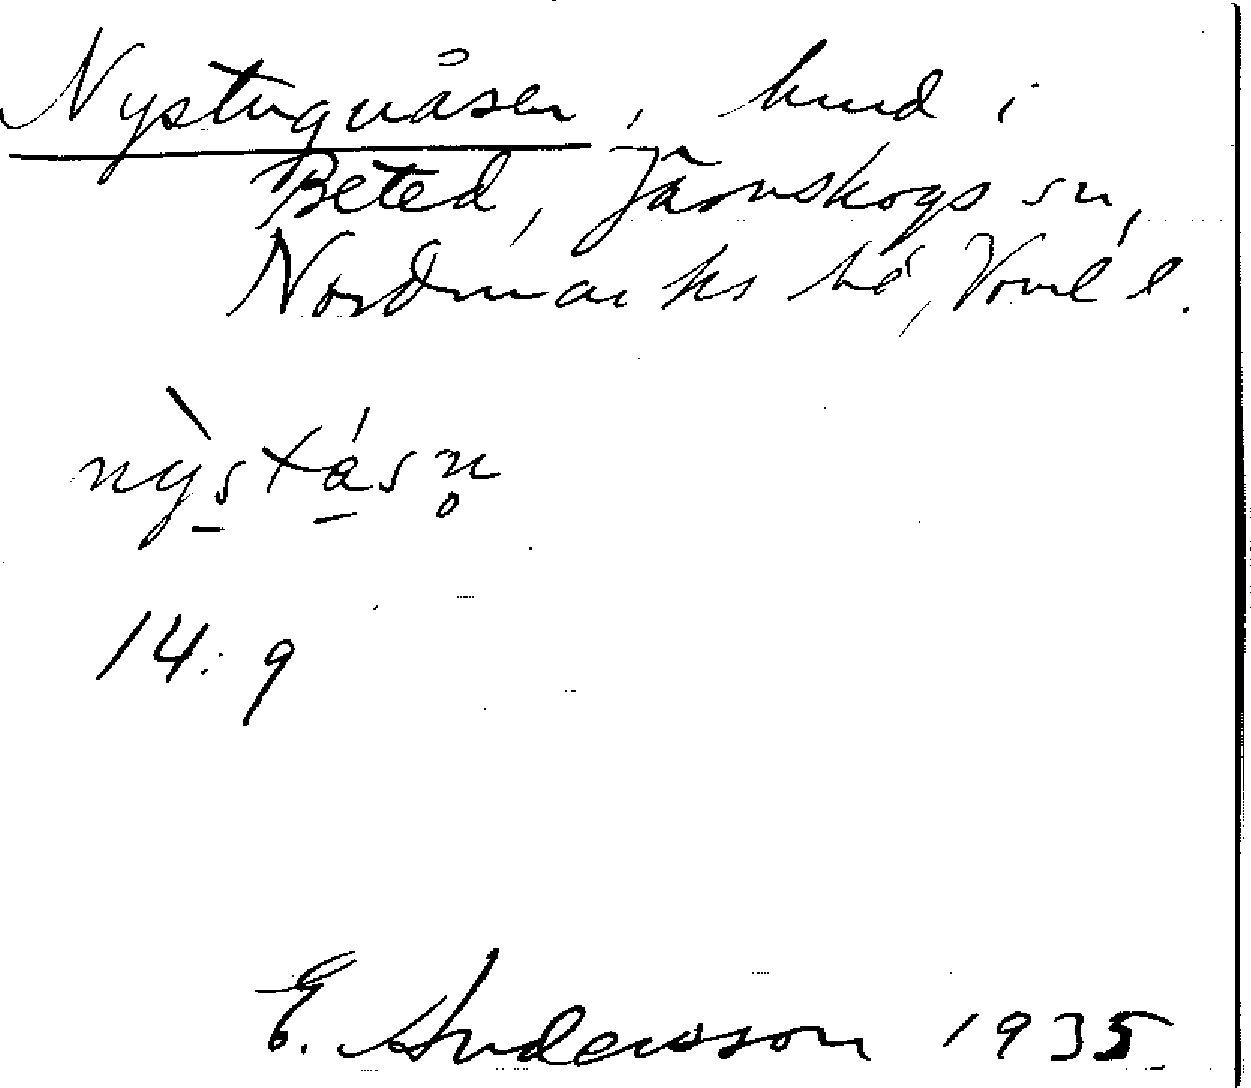 Nystuguåsen, hmd i
Beted, Järnskogs sn,
Nordmarks hd, Vrml. l.
nỳstásn̥
14: 9
E. Andersson 1935